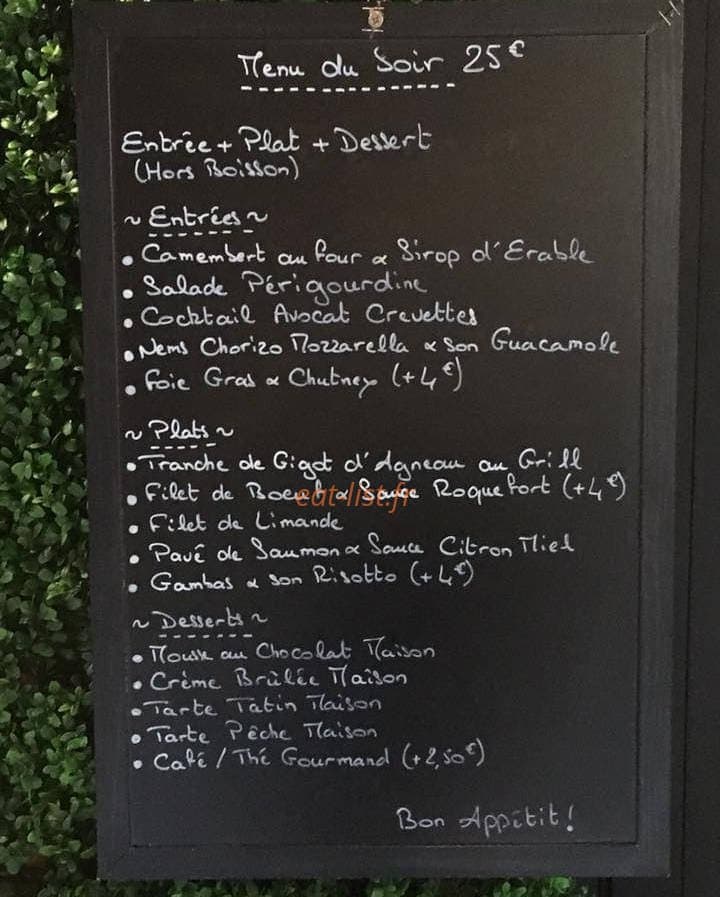 Menu du Soir 25€
Entrée + Plat + Dessert
(Hors Boisson)
~ Entrées ~
• Camembert au four & Sirop d'Erable
• Salade Périgourdine
• Cocktail Avocat Crevettes
• Nems Chorizo Mozzarella & son Guacamole
• Foie Gras & Chutney (+4€)
~ Plats ~
• Tranche de Gigot d'Agneau au Grill
• Filet de Boeuf & Sauce Roquefort (+4€)
eat-list.fr
• Filet de Limande
• Pavé de Saumon & Sauce Citron Miel
• Gambas & son Risotto (+4€)
~ Desserts ~
• Mousse au Chocolat Maison
• Crème Brûlée Maison
• Tarte Tatin Maison
• Tarte Pêche Maison
• Café / Thé Gourmand (+2,50€)
Bon Appétit !